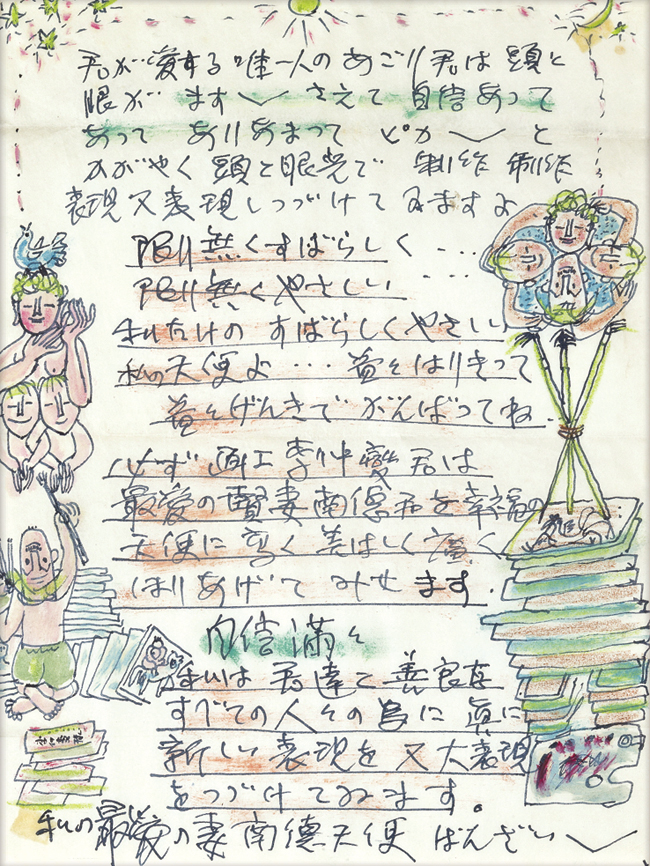 君が愛する唯一人のあごり君は頭と
眼がます〱さえて自信あって
あって ありあまって ピカ〱と
かがやく頭と眼光で 制作 制作
表現又表現しつづけてゐますよ
限り無くすばらしく・・・
限り無くやさしい
私だけの すばらしくやさしい
私の天使よ・・・益々はりきって
益々げんきで がんばってね
必ず 画工李仲燮君は
最愛の賢妻南德君を幸福の
天使に高く美ばしく広く
ほりあげて みせます.
自信満々
私は君達と善良な
すべての人々の為に真に
新しい表現を又大表現
をつづけてゐます。
私の最愛の妻南德天使 ばんざい〱